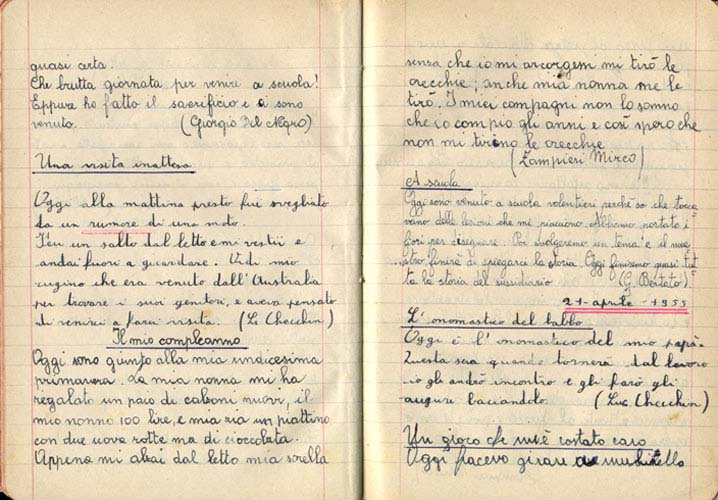 quasi certa.
Che brutta giornata per venire a scuola!
Eppure ho fatto il sacrificio e sono
venuto. (Giorgio Del Negro)
Una visita inattesa
Oggi alla mattina presto fui svegliato
da un rumore di una moto.
Feci un salto dal letto e mi vestii e
andai fuori a guardare. Vidi mio
cugino che era venuto dall'Australia
per trovare i suoi genitori, e aveva pensato
di venirci a farci visita. (L. Checchin)
Il mio compleanno
Oggi sono giunto alla mia undicesima
primavera. La mia nonna mi ha
regalato un paio di calzoni nuovi, il
mio nonno 100 lire, e mia zia un piattino
con due uova rotte ma di cioccolata.
Appena mi alzai dal letto mia sorella
senza che io mi arcorgeni mi tirò le
orecchie; anche mia nonna me le
tirò. I miei compagni non lo sanno
che io compio gli anni e così spero che
non mi tirino le orecchie
(Zampieri Mirco)
A scuola
Oggi sono venuto a scuola volentieri perchè so che tocca
vano delle lezioni che mi piacciono. Abbiamo portato i
fiori per disegnare. Poi svolgeremo un tema e il mae
stro finirà di spiegarci la storia. Oggi finiremo quasi tut
ta la storia del sussidiario (G. Bertato).
21-aprile-1955
L'onomastico del babbo
Oggi è l'onomastico del mio papà.
Questa sera quando tornerà dal lavoro
io gli andrò incontro e gli farò gli
auguri baciandolo. (Luc. Checchin)
Un gioco che mi è costato caro
Oggi facevo girare